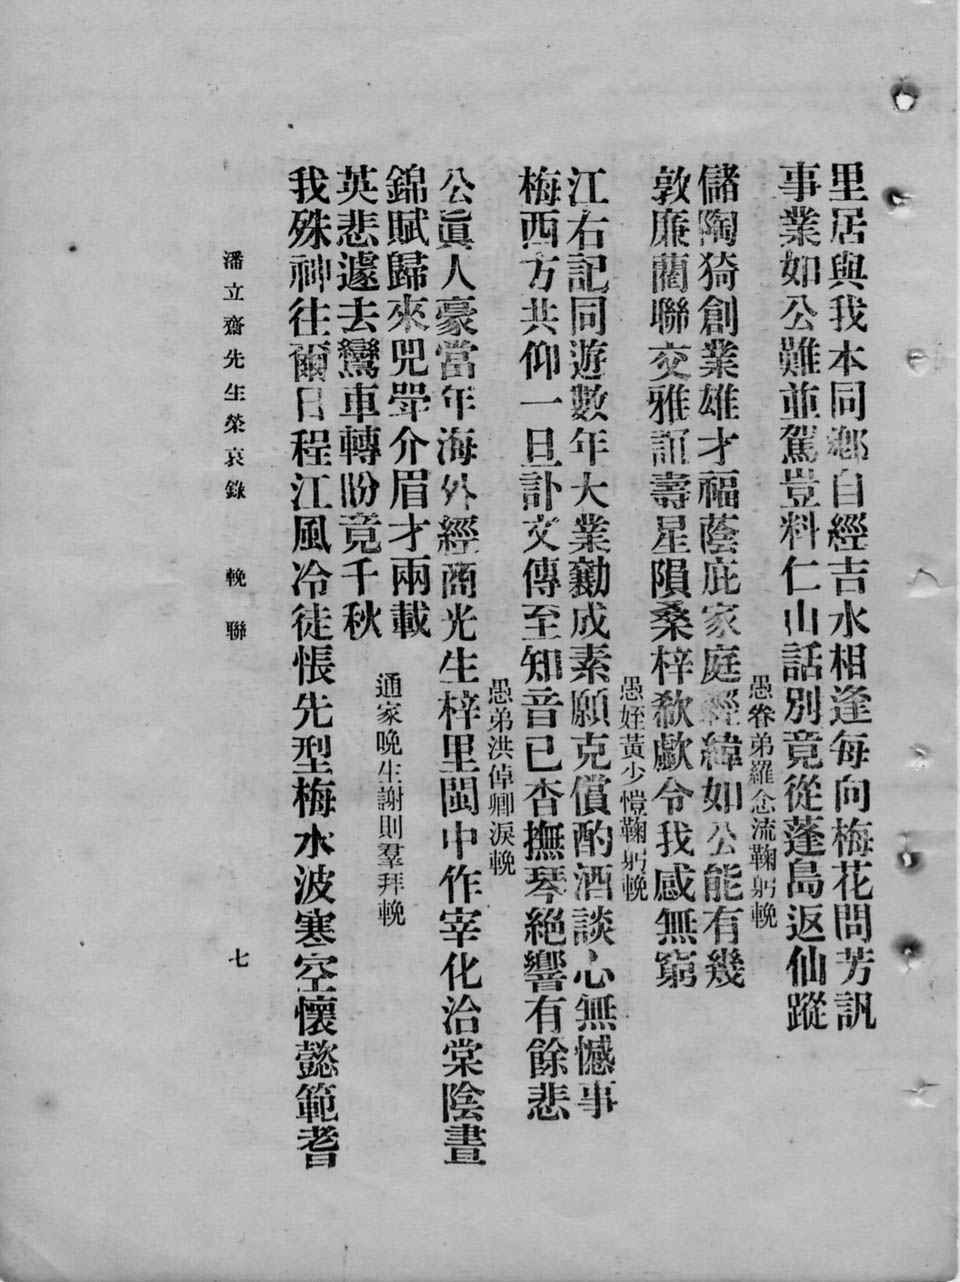 里居與我本同鄉自經吉水相逢每向梅花問芳訊
事業如公難並駕豈料仁山話別竟從蓬島返仙蹤
愚眷弟羅念流鞠躬輓
儲陶猗創業雄才福蔭庇家庭經緯如公能有幾
敦廉藺聯交雅誼壽星隕桑梓欷歔令我感無窮
愚姪黃少愷鞠躬輓
江右記同遊數年大業勷成素願克償酌酒談心無憾事
梅西方共仰一旦訃文傳至知音已杳撫琴絕響有餘悲
愚弟洪倬卿淚輓
公眞人豪當年海外經商光生梓里閩中作宰化洽棠陰晝
錦賦歸來兕斝介眉才兩載
通家晚生謝則羣拜輓
我殊神往爾日程江風冷徒悵先型梅水波寒空懷懿範耆
英悲遽去鸞車轉盼竟千秋
潘立齋先生榮哀錄 輓聯 七